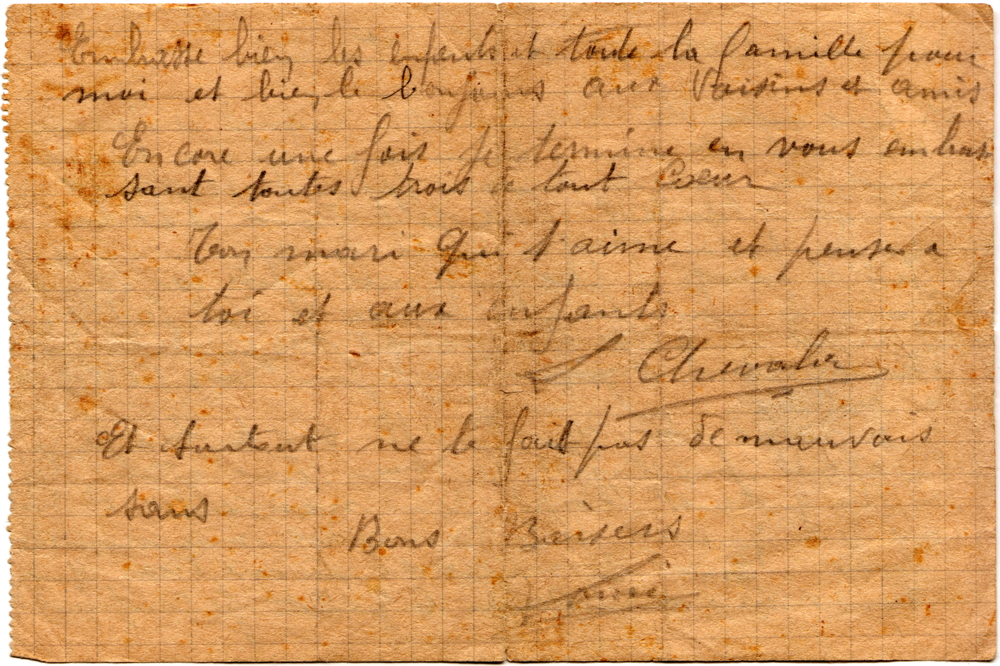 Embrasse bien les enfents et toute la famille pour
moi et bien le bonjours aux Voisins et amis
Encore une fois je termine en vous embras
sant toutes trois de tout Coeur
Ton mari qui t'aime et pense a
toi et aux enfants
L Chevalier
Et surtout ne te fait pas de mauvais
sans
Bons Baisers
Louis